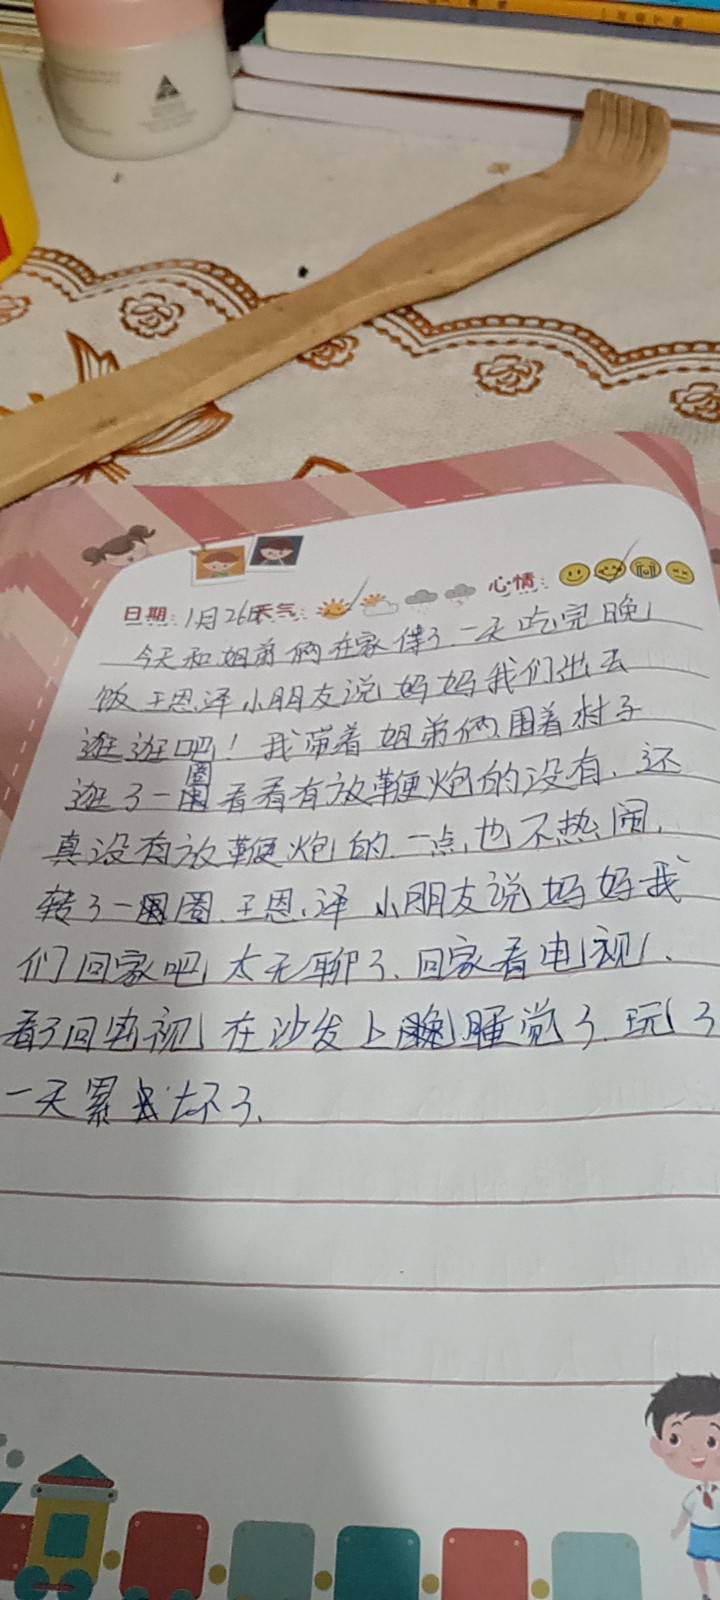 日期:1月26日天气: 心情:
今天和姐弟俩在家待了一天吃完晚
饭王恩泽小朋友说妈妈我们出去
逛逛吧!我带着姐弟俩围着村子
圈
逛了一看看有放鞭炮的没有、还
真没有放鞭炮的.一点也不热闹.
转了一圈.王恩泽小朋友说妈妈我
们回家吧太无聊了、回家看电视、
看了回电视在沙发上睡觉了.玩了
一天累坏了.